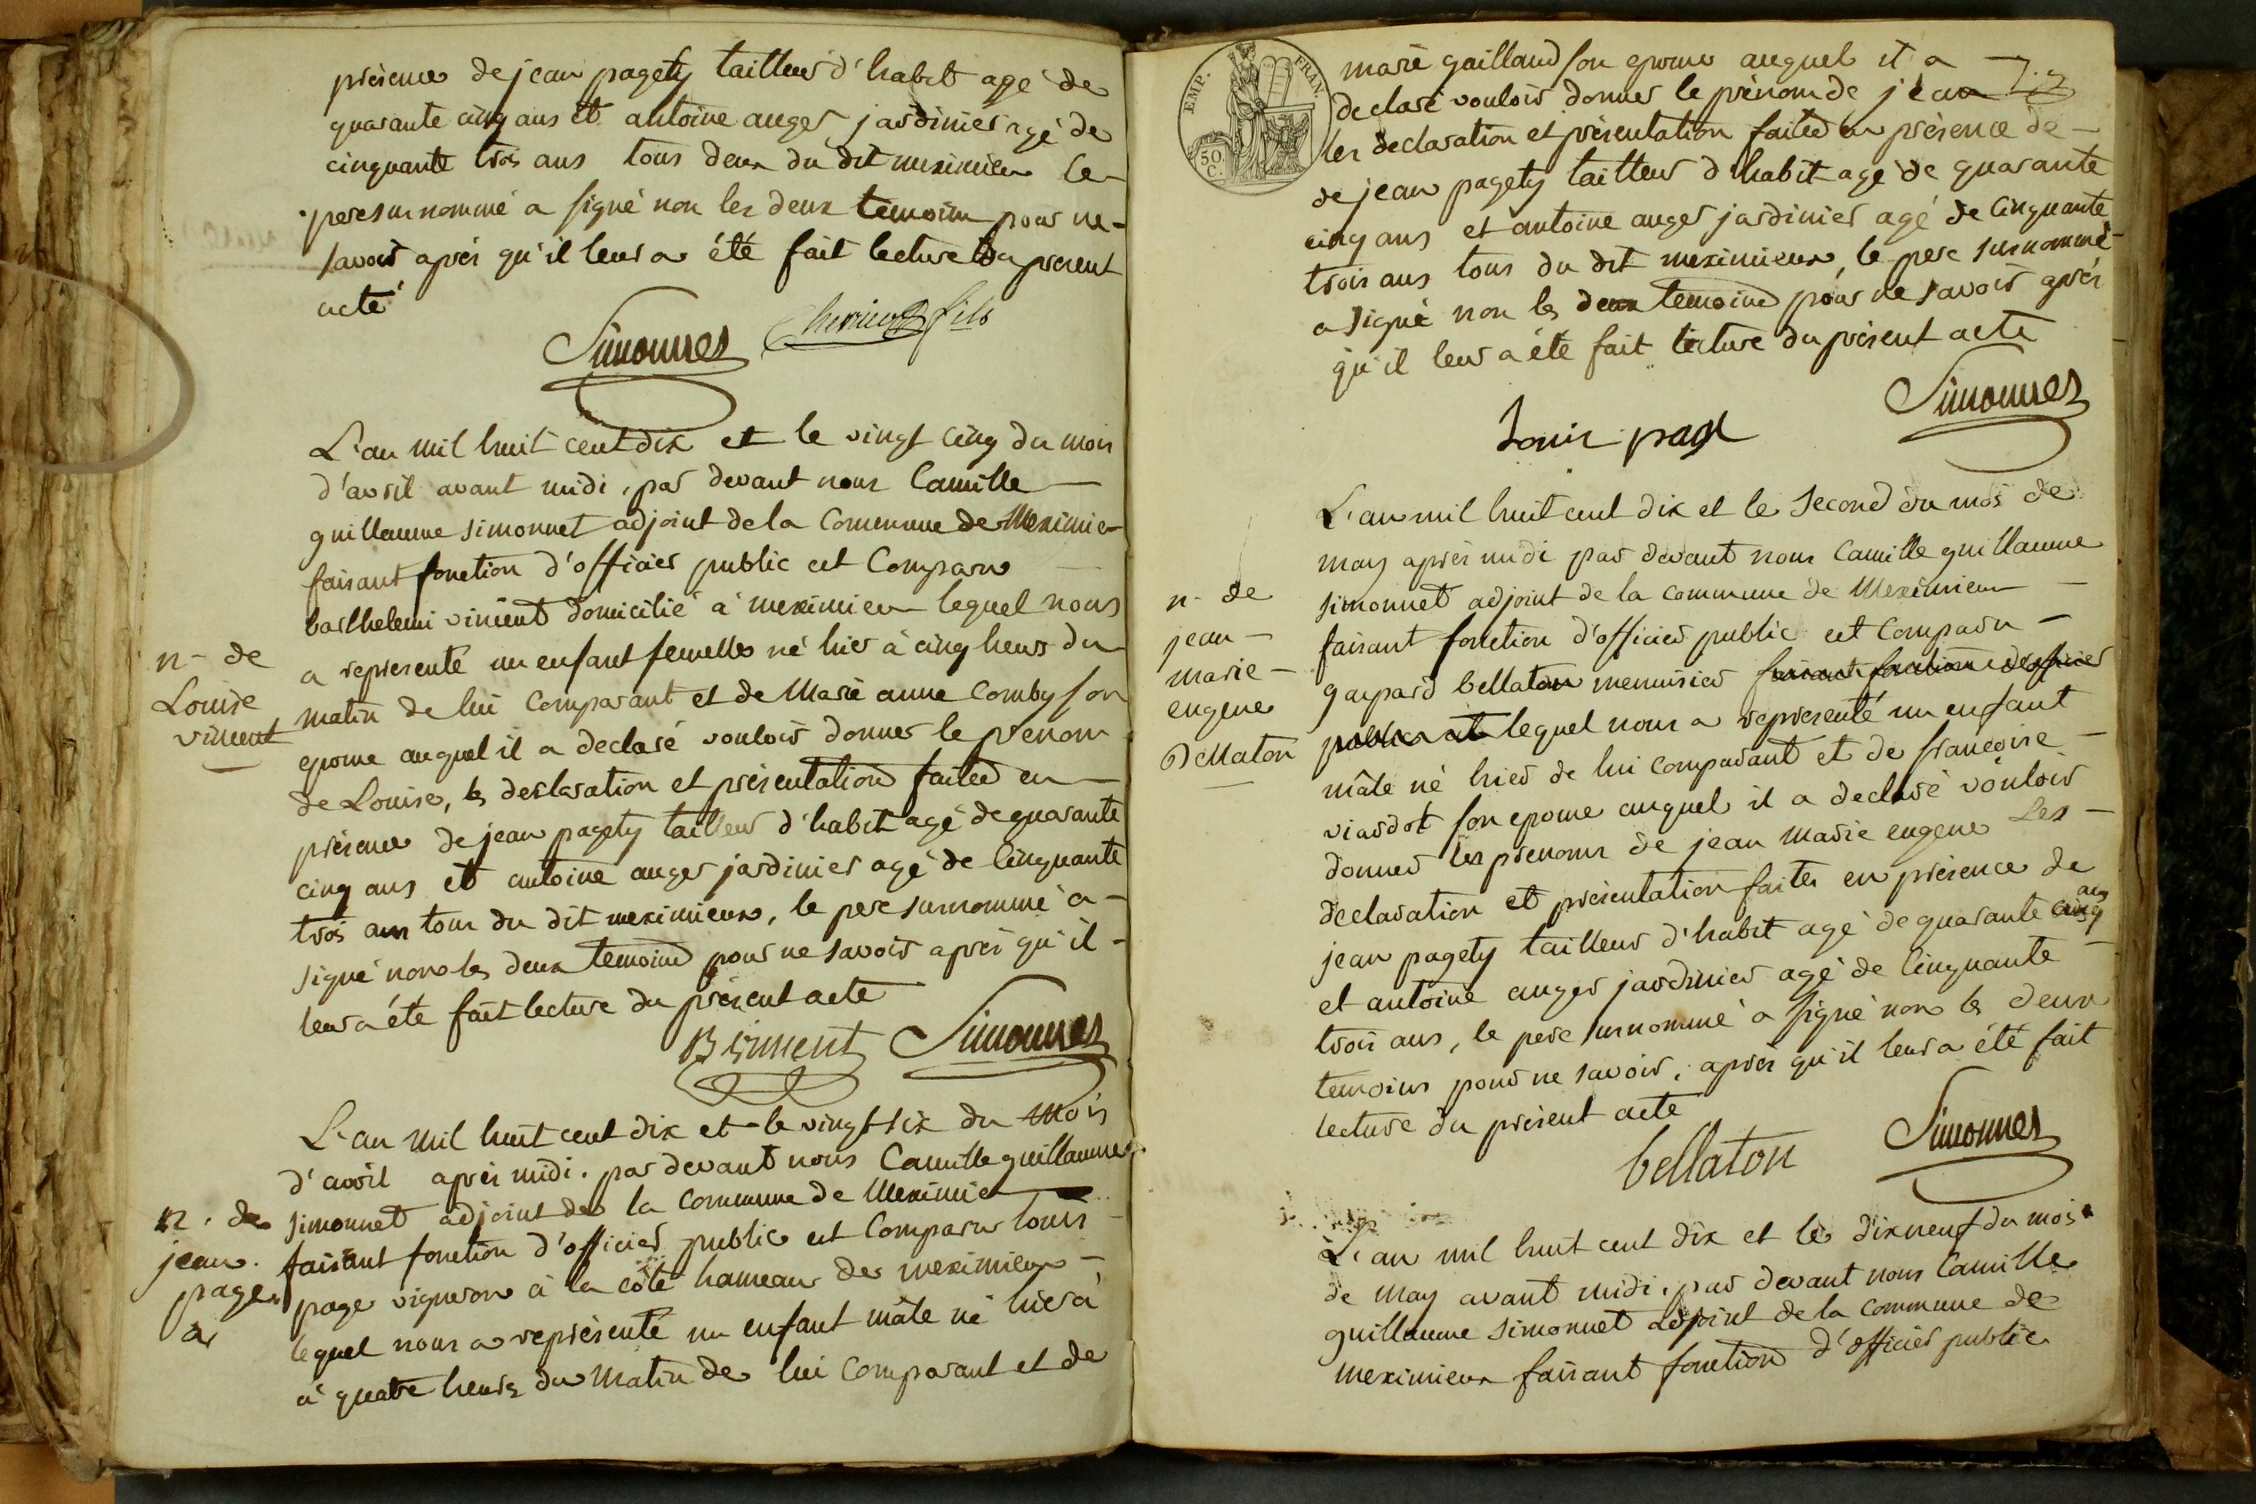 présence de jean pagety tailleur d'habit agé de
quarante cinq ans et antoine auger jardinier agé de
cinquante trois ans tous deux du dit meximieux le
pere surnommé a signé non les deux temoins pour ne
savoir après qu'il leur a été fait lecture du present
acte
Simonnet fils
L'an mil huit cent dix et le vingt cinq du mois
d'avril avant midi, par devant nous Camille
guillaume simonnet adjoint de la Commune de Meximieu
faisant fonction d'officier public est Comparu
barthelemi vincent domicilié à meximieu lequel nous
n- de
Louise
vincent
a representé un enfant femelle né hier à cinq heurs du
matin de lui Comparant et de Marie anne Comby son
epouse auquel il a declaré vouloir donner le prenom
de Louise, les declaration et présentation faites en
présence de jean pagety tailleur d'habit agé de quarante
cinq ans et antoine auger jardinier agé de Cinquante
trois ans tous du dit meximieux, le pere surnommé a
signé non les deux temoins pour ne savoir après qu'il
leur a été fait lecture du présent acte
B vincent Simonnet
L'an mil huit cent dix et le vingt six du mois
d'avril après midi. par devant nous Camille guillaume
n. de
jean
page
simonnet adjoint de la Commune de Meximieu
faisant fonction d'officier public est Comparu louis
page vigneron à la cote hameau de meximieux
lequel nous a représenté un enfant mâle né hier à
à quatre heurs du matin de lui Comparant et de
EMP. FRAN.
50 C.
marie gailland son epouse auquel il a
declaré vouloir donner le prénom de jean
les declaration et présentation faites en présence de
de jean pagety tailleur d'habit agé de quarante
cinq ans et antoine auger jardinier agé de Cinquante
trois ans tous du dit meximieux, le pere surnommé
a signé non les deux temoins pour ne savoir après
qu'il leur a été fait lecture du présent acte
Louis page Simonnet
L'an mil huit cent dix et le second du mois de
may après midi par devant nous Camille guillaume
n- de
jean
marie
eugene
Bellaton
simonnet adjoint de la commune de Meximieux
faisant fonction d'officier public est Comparu
gaspard bellaton menuisier faisant fonction d'officier
public est lequel nous a representé un enfant
mâle né hier de lui comparant et de françoise
viardot son epouse auquel il a declaré vouloir
donner les prenoms de jean marie eugene Les
declaration et présentation faites en présence de
jean pagety tailleur d'habit agé de quarante cinq
et antoine auger jardinier agé de Cinquante
trois ans, le pere surnommé a signé non les deux
temoins pour ne savoir, après qu'il leur a été fait
lecture du présent acte
bellaton Simonnet
L'an mil huit cent dix et le dixneuf du mois
de may avant midi, par devant nous Camille
guillaume simonnet adjoint de la commune de
meximieux faisant fonction d'officier public